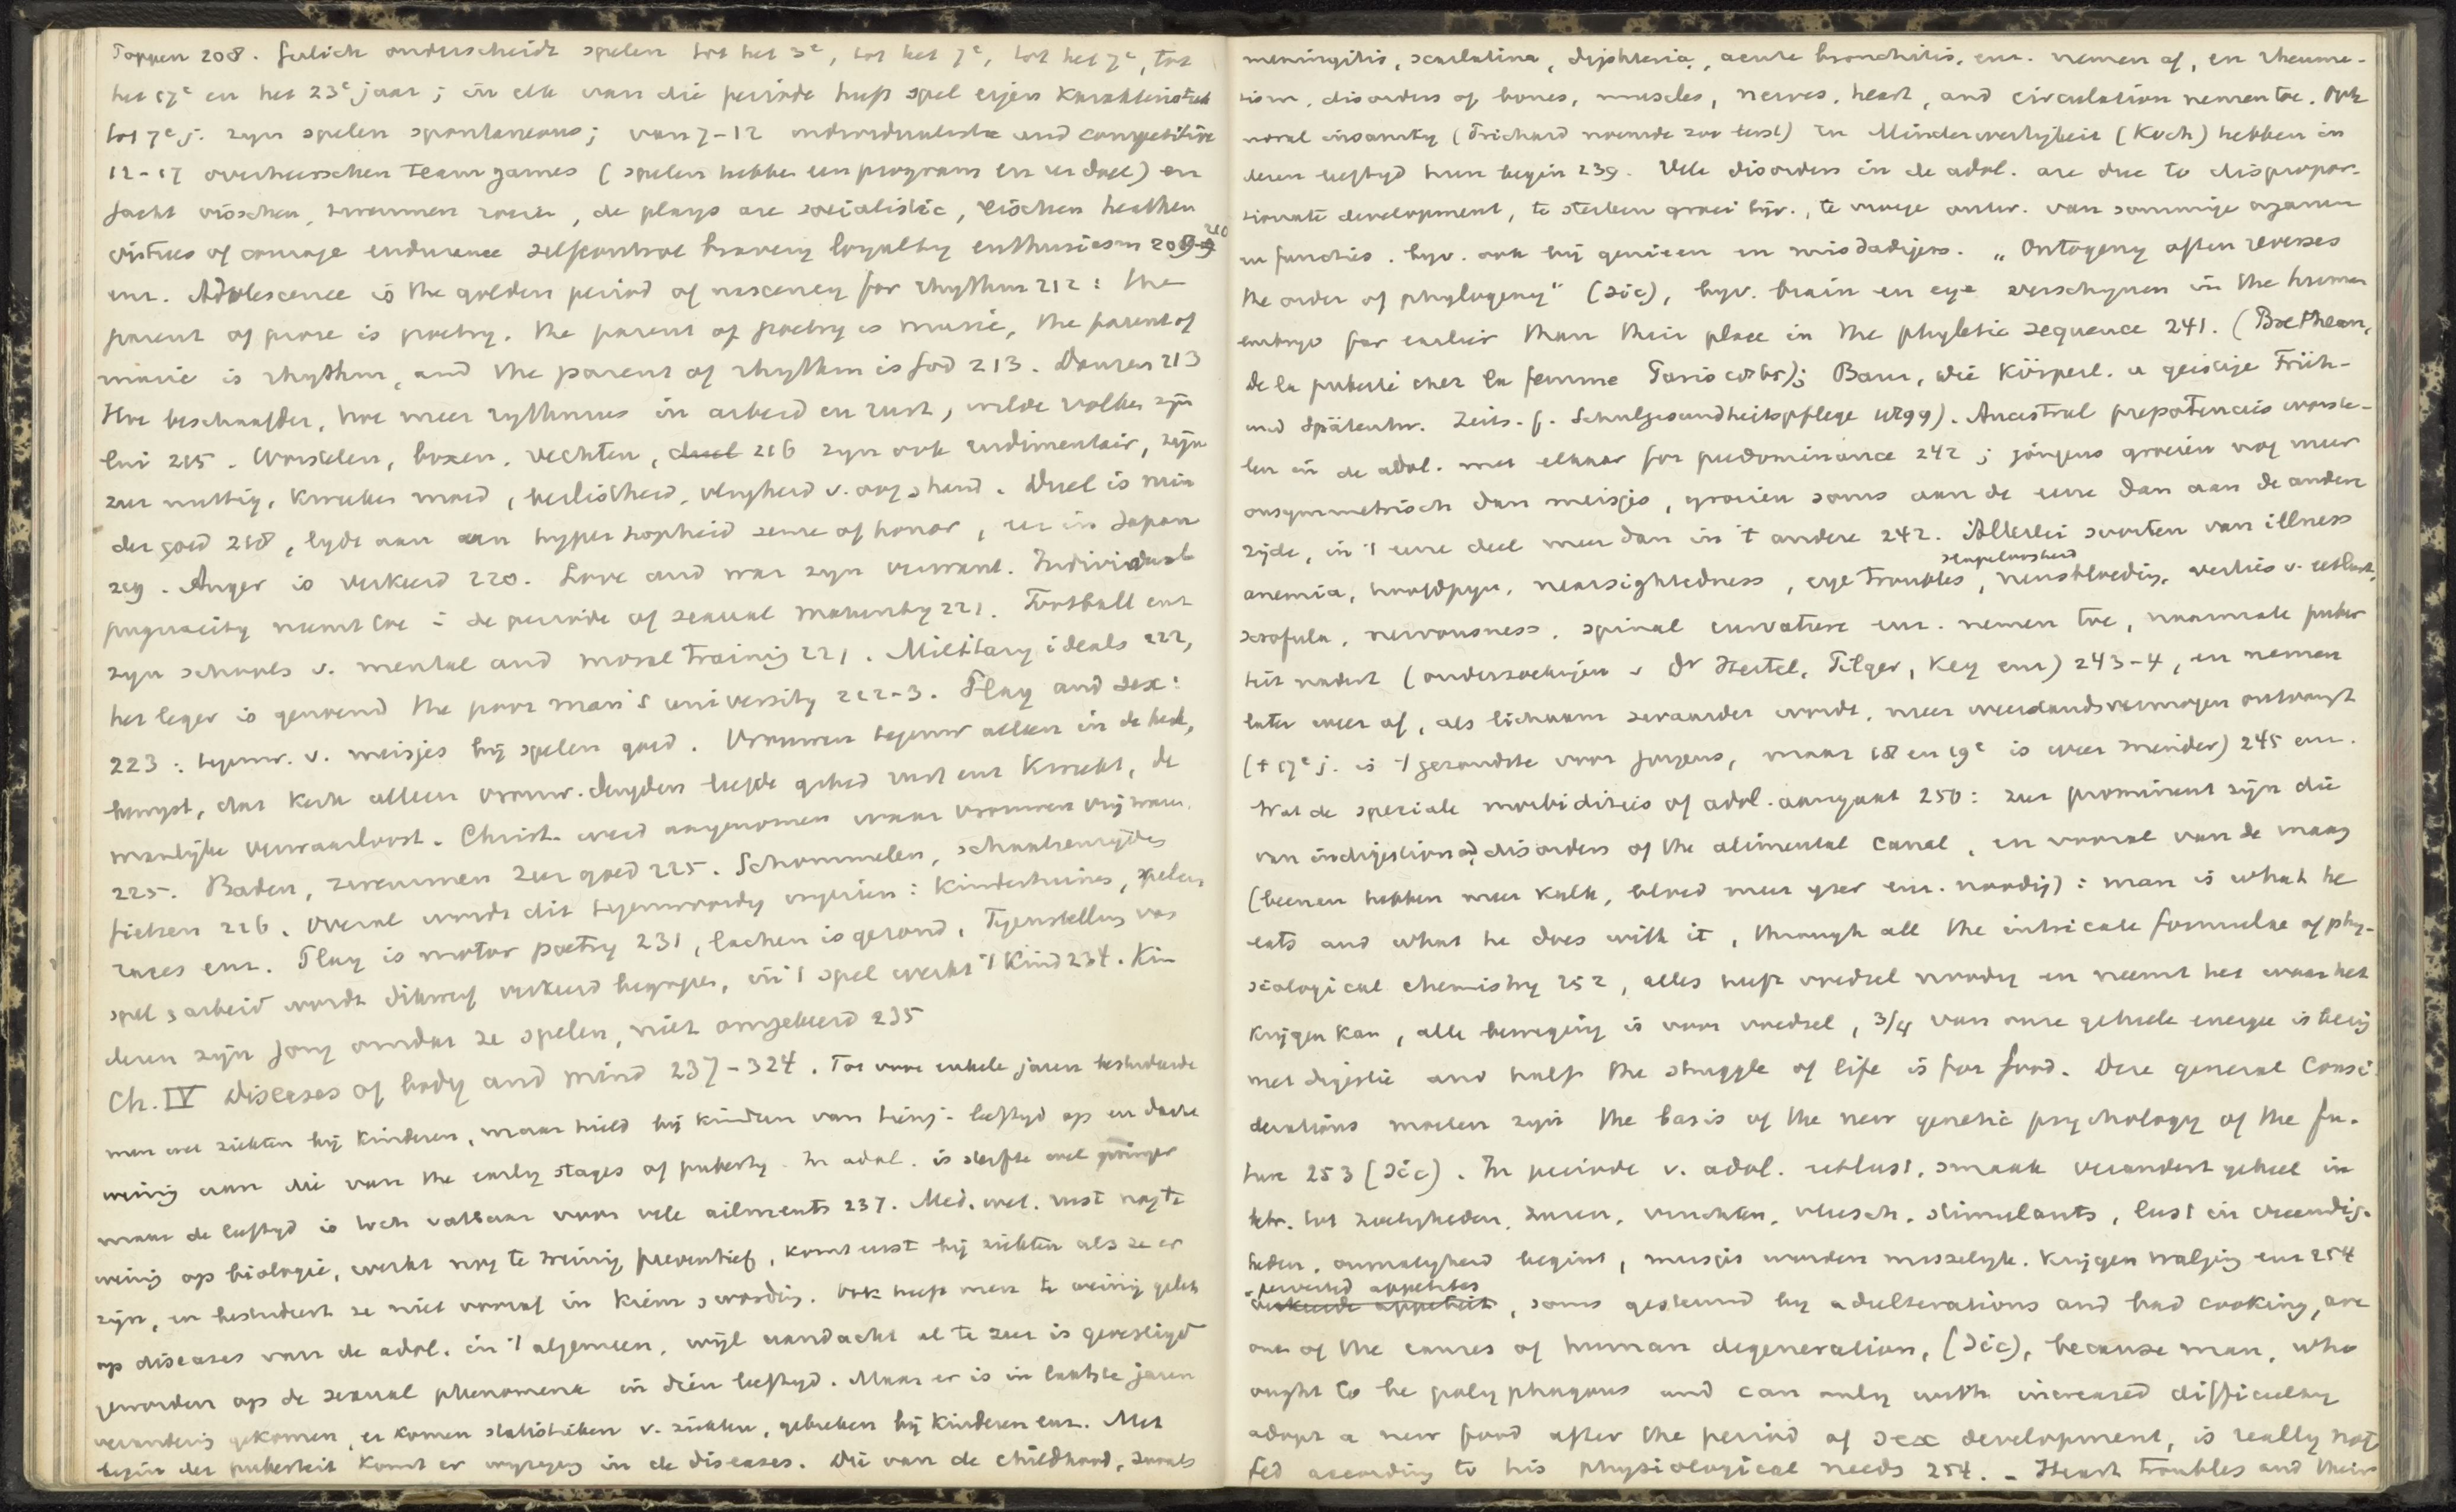 Poppen 208. Gulick onderscheidt spelen tot het 3e, tot het 7e, tot het 7e, tot
het 17e en het 23e jaar; in elk van die periode heeft spel eigen karakteristiek
tot 7e j. zijn spelen spontaneous; van 7-12 individualistic and competitive
12-17 overheerschen team games (spelen hebben een program en een doel) en
jacht visschen, zwemmen roeien, de plays are socialistic, eischen heathen
virtues of courage endurance selfcontrol bravery loyalty enthusiasm 209-210
enz. Adolescence is the golden period of nascency for rhythm 212: the
parent of prose is poetry, the parent of poetry is music, the parent of
music is rhythm, and the parent of rhythm is God 213. Dansen 213
Hoe beschaafder, hoe meer rythmus in arbeid en rust, wilde volken zijn
lui 215. Worstelen, boxen, vechten, duel 216 zijn ook rudimentair, zijn
zeer nuttig, kweeken moed, beslistheid, vlugheid v. oog & hand. Duel is min
der goed 218, lijdt aan een hypertropheid sense of honor, en in Japan
219. Anger is verkeerd 220. Love and war zijn verwant. Individual
pugnacity neemt toe in de periode of sexual maturity 221. Football enz
zijn schools v. mental and moral training 221. Military ideals 222,
het leger is genoemd the poor man's university 222-3. Play and sex:
223: tegenw. v. meisjes bij spelen goed. Vrouwen tegenw alleen in de kerk,
bewijst, dat kerk alleen vrouw. deugden liefde geduld rust enz kweekt, de
manlijke verwaarloost. Christ. werd aangenomen waar vrouwen vrij waren.
225. Baden, zwemmen zeer goed 225. Schommelen, schaatsenrijden
fietsen 226. Overal wordt dit tegenwoordig ingezien: kindertuinen, spelen
races enz. Play is motor poetry 231, lachen is gezond. Tegenstelling van
spel & arbeid wordt dikwerf verkeerd begrepen, in 't spel werkt 't kind 234. Kin
deren zijn jong omdat ze spelen, niet omgekeerd 235
Ch. IV Diseases of body and mind 237-324. Tot voor enkele jaren bestudeerde
men wel ziekten bij kinderen, maar hield bij kinderen van leeftijd op en dacht
weinig aan die van the early stages of puberty. In adol. is sterfte wel geringer
maar de leeftijd is toch vatbaar voor vele ailments 237. Med. wet. rust nog te
weinig op biologie, werkt nog te weinig preventief, komt eerst bij ziekten als ze er
zijn, en bestudeert ze niet vooraf in kiem & wording. Ook heeft men te weinig gelet
op diseases van de adol. in 't algemeen, wijl aandacht al te zeer is gevestigd
geworden op de sexual phenomena in dien leeftijd. Maar er is in laatste jaren
verandering gekomen, er komen statistieken v. ziekten, gebreken bij kinderen enz. Met
begin der puberteit komt er wijziging in de diseases. Die van de childhood, zooals
meningitis, scarlatina, diphteria, acute bronchitis, enz. nemen af, en rheuma-
tism, disorders of bones, muscles, nerves, heart, and circulation nemen toe. Ook
moral insanity (Prichard noemde zoo eerst) en Minderwertigkeit (Koch) hebben in
dezen leeftijd hun begin 239. Vele disorders in de adol. are due to dispropor-
tionate development, te sterken groei bijv., te vroege ontw. van sommige organen
en functies. bijv. ook bij genieen en misdadigers. „Ontogeny often reverses
the order of phylogeny" (sic), bijv. brain en eye verschijnen in the human
embryo far earlier than their place in the phyletic sequence 241. (
de la puberté chez la femme Paris ); Baur, Die körperl. u geistige Früh-
und Spätentw. Zeits. f. Schulgesundheitspflege 1899). Ancestral prepotencies worste-
len in de adol. met elkaar for predominance 242; jongens groeien nog meer
onsymmetrisch dan meisjes, groeien soms aan de eene dan aan de andere
zijde, in 't eene deel meer dan in 't andere 242. Allerlei soorten van illness
anemia, hoofdpijn, nearsightedness, eye troubles, slapeloosheid neusbloeding, verlies v. eetlust,
scrofula, nervousness, spinal curvature enz. nemen toe, naarmate puber
teit nadert (onderzoekingen v Dr Hertel, Pilger, Key enz) 243-4, en nemen
later weer af, als lichaam zwaarder wordt, meer weerstandsvermogen ontvangt
(± 17e j. is 't gezondste voor jongens, maar 18 en 19e is weer minder) 245 enz.
Wat de speziale morbidities of adol. aangaat 250: zeer prominent zijn die
van indigestion and disorders of the alimental canal, en vooral van de maag
(beenen hebben meer kalk, bloed meer ijzer enz. noodig): man is what he
eats and what he does with it, through all the intricate formulae of phy-
siological chemistry 252, alles heeft voedsel noodig en neemt het waar het
krijgen kan, alle beweging is voor voedsel, 3/4 van onze geheele energie is bezig
met digestie and half the struggle of life is for food. Deze general consi
derations moeten zijn the basis of the new genetic psychology of the fu-
ture 253 (sic). In periode v. adol. eetlust, smaak verandert geheel in
betr. tot zoetigheden, zuren, vruchten, vleesch, stimulants, lust in vreemdig-
heden, onmatigheid begint, meisjes worden misselijk. krijgen walging enz 254
perverted appetites
verkeerde appetites, soms gesteund by adulterations and bad cooking, are
one of the causes of human degeneration, (sic), because man, who
ought to be polyphagous and can only with increased difficulty
adopt a new food after the period of sex development, is really not
fed according to his physiological needs 254. - Heart troubles and their